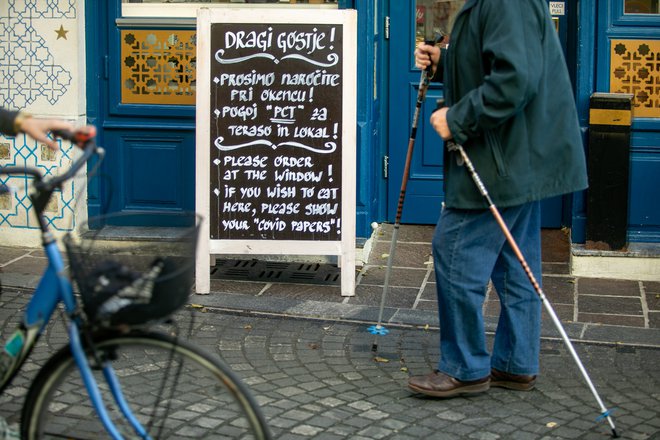 DRAGI GOSTJE!
PROSIMO NAROČITE
PRI OKENCU!
POGOJ "PCT" ZA
TERASO IN LOKAL!
PLEASE ORDER
AT THE WINDOW!
IF YOU WISH TO EAT
HERE, PLEASE SHOW
YOUR "COVID PAPERS"!